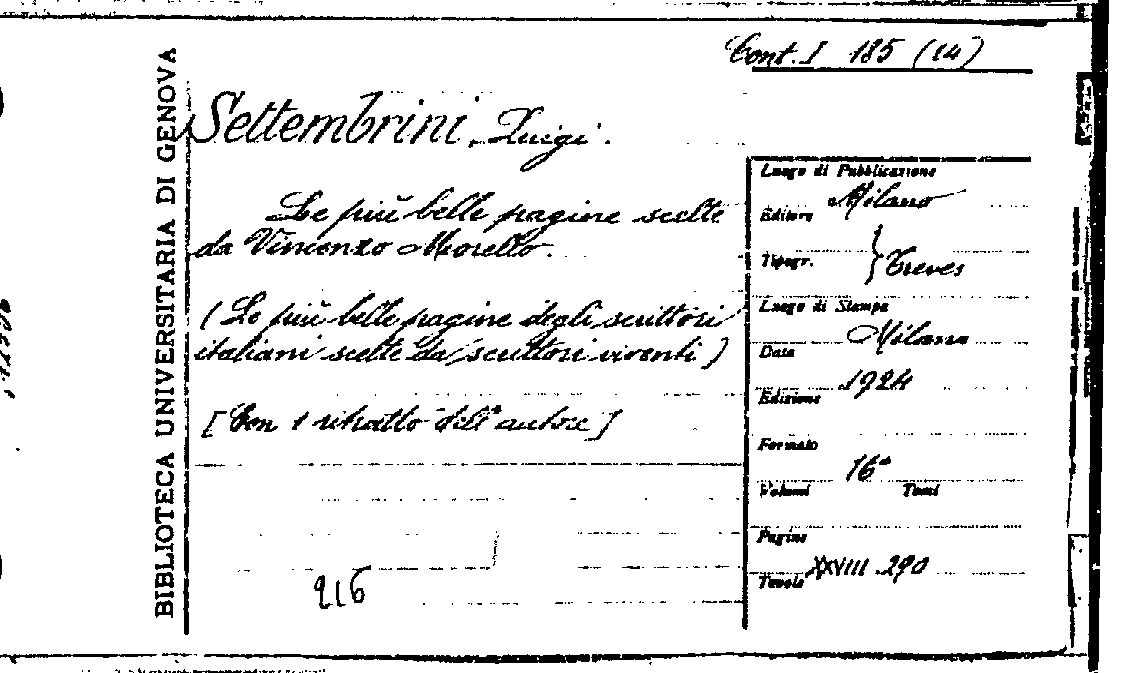 Cont. I 185 (14)
BIBLIOTECA UNIVERSITARIA DI GENOVA
Settembrini, Luigi.
Le più belle pagine scelte
da Vincenzo Morello.
(Le più belle pagine degli scrittori
italiani scelte da scrittori viventi)
[Con 1 ritratto dell'autore]
216
Luogo di Pubblicazione
Milano
Editore
Tipogr. } Treves
Luogo di Stampa
Milano
Data
1924
Edizione
Formato
16°
Volumi Tomi
Pagine
XXVIII.290
Tavole